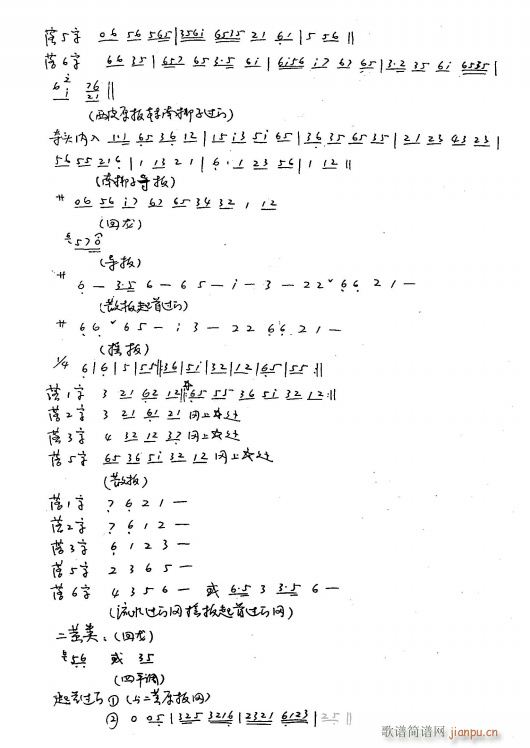 落5字 06 56 565 | 356i 6535 21 61 | 5 56 ||
落6字 66 35 | 657 65 3.5 6i | 6i56 i7 67 65 | 3.2 35 6i 6535 |
62i 7621 ||
(西皮原板
夺头内入 1.1 65 36 12 | 15 i3 5i 65 | 36 35 65 35 | 21 23 43 23 |
56 55 21 6 | 1 13 21 | 6.1 23 56 | 1 12 ||
(南梆子导板)
サ 06 56 i7 67 65 34 32 1 12
(回龙)
570
(导板)
サ 6 — 3.5 6 — 6 5 — i — 3 — 2 2 ˇ 6 6 2 1 —
(散板起首过门)
サ 6 6 ˇ 6 5 — i 3 — 2 2 6 6 2 1 —
(摇板)
1/4 6 | 6 | 5 | 55 || 36 | 5i | 32 | 12 | 65 | 55 :||
落1字 3 21 62 12 || 65 55 36 5i 32 12 :||
落2字 3 21 61 21 同上
落3字 4 32 12 37 同上
落5字 65 36 5i 32 12 同上
(散板)
落1字 7 6 2 1 —
落2字 7 6 1 2 —
落3字 6 1 2 3 —
落5字 2 3 6 5 —
落6字 4 3 5 6 — 或 6.5 3 3.5 6 —
(流水过门同摇板起首过门同)
二黄类: (回龙)
56 或 35
(四平调)
起首过门 ① (与二黄原板同)
② 0 05 | 325 3216 | 2321 6123 | 25 ||
歌谱简谱网
jianpu.cn